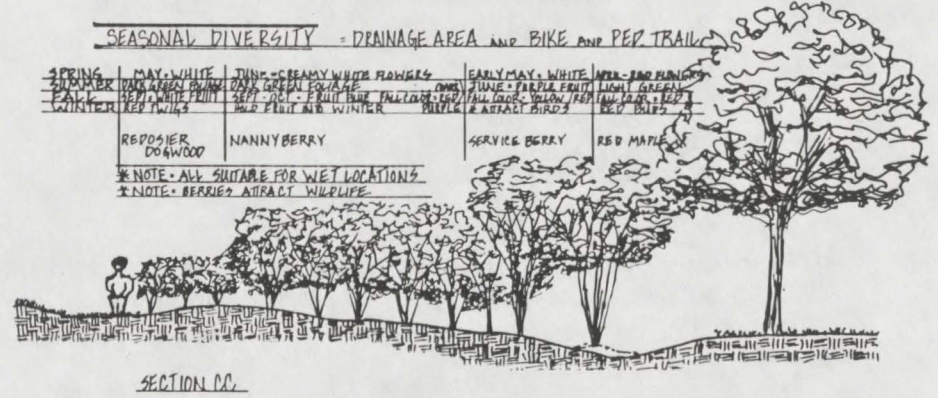 SEASONAL DIVERSITY = DRAINAGE AREA AND BIKE AND PED. TRAIL
SPRING MAY - WHITE JUNE - CREAMY WHITE FLOWERS EARLY MAY - WHITE APRIL - RED FLOWERS
SUMMER DARK GREEN FOLIAGE DARK GREEN FOLIAGE JUNE - PURPLE FRUIT LIGHT GREEN
FALL SEPT - WHITE FRUIT SEPT - OCT - FRUIT BLUE FALL COLOR - RED/ FALL COLOR - YELLOW/RED FALL COLOR - RED
WINTER RED TWIGS FRUIT AND WINTER PURPLE * ATTRACT BIRDS RED BUDS
REDOSIER NANNYBERRY SERVICE BERRY RED MAPLE
DOGWOOD
* NOTE - ALL SUITABLE FOR WET LOCATIONS
* NOTE - BERRIES ATTRACT WILDLIFE
SECTION CC